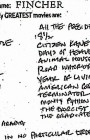 me: FINCHER
y GREATEST movies are:
ALL THE PRESID
8½
CITIZEN KANE
DAYS OF HEA
ANIMAL HOUS
ROAD WARRIO
YEAR OF LIVIN
AMERICAN G
TERMINATO
MONTY PYTHON
THE EXORCIST
THE GRADUATE
IN NO PARTICULAR ORDE